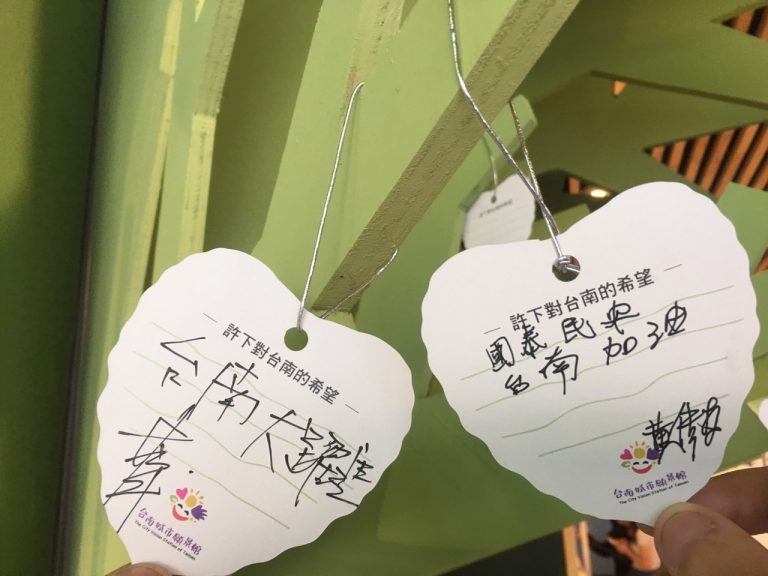 許下對台南的希望
台南大
台南城市願景館
The City Vision Station of Tainan
許下對台南的希望
國泰民安
台南加油
黃偉哲
台南城市願景館
The City Vision Station of Tainan
許下對台南的希望